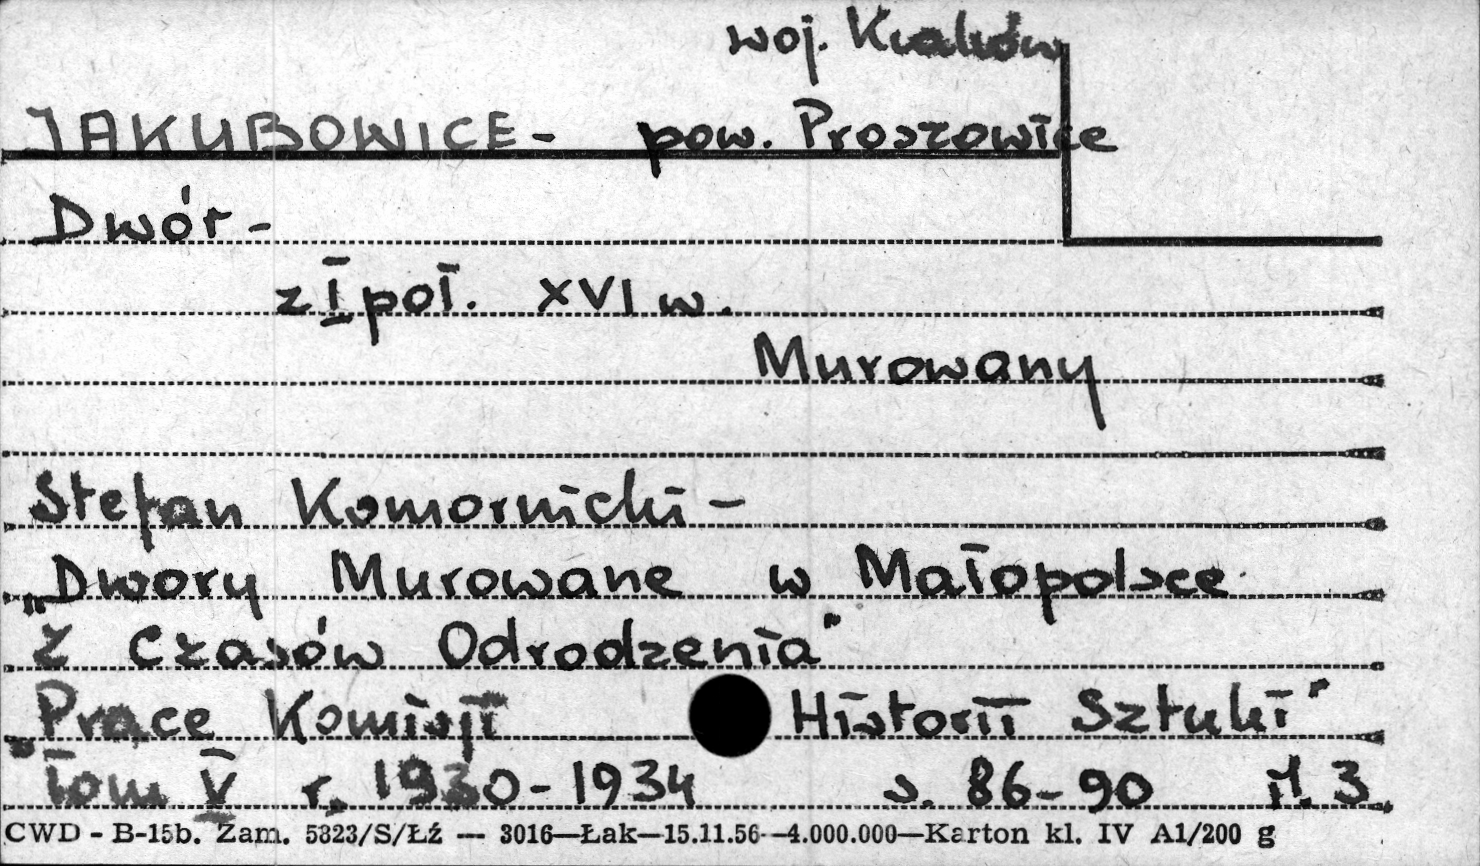 woj. Kraków
JAKUBOWICE - pow. Proszowice
Dwór -
z I poł. XVI w.
Murowany
Stefan Komornicki -
„Dwory Murowane w Małopolsce
z Czasów Odrodzenia"
„Prace Komisji Historii Sztuki"
Tom V r. 1930-1934 s. 86-90 il. 3
CWD - B-15b. Zam. 5823/S/Łź — 3016—Łak—15.11.56—4.000.000—Karton kl. IV A1/200 g